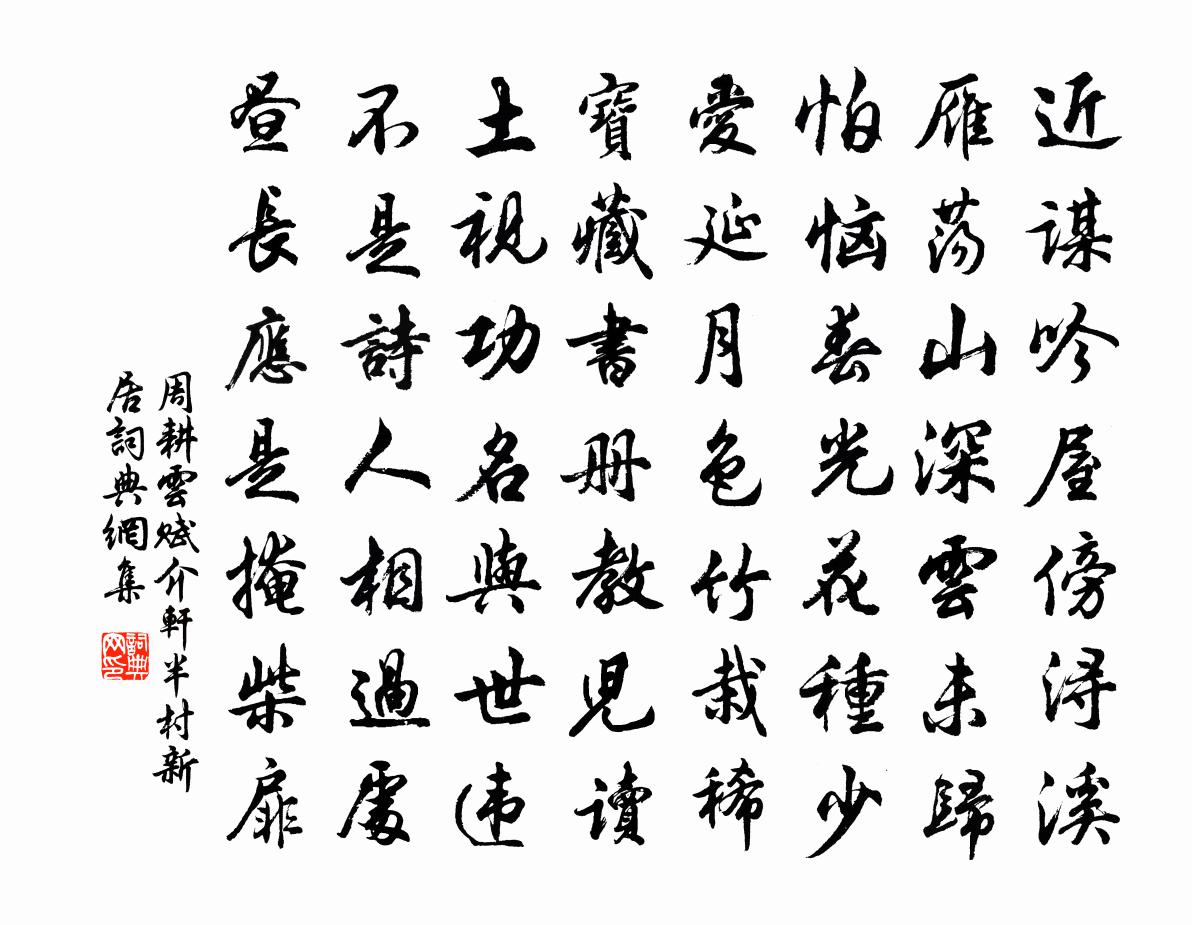 近謀吟屋傍浔溪
雁荡山深雲未歸
怕惱春光花種少
愛延月色竹栽稀
寶藏書册教兒讀
土視功名與世违
不是詩人相過處
昼長應是掩柴扉
周耕雲賦介軒半村新
居詞典網集
詞典网印